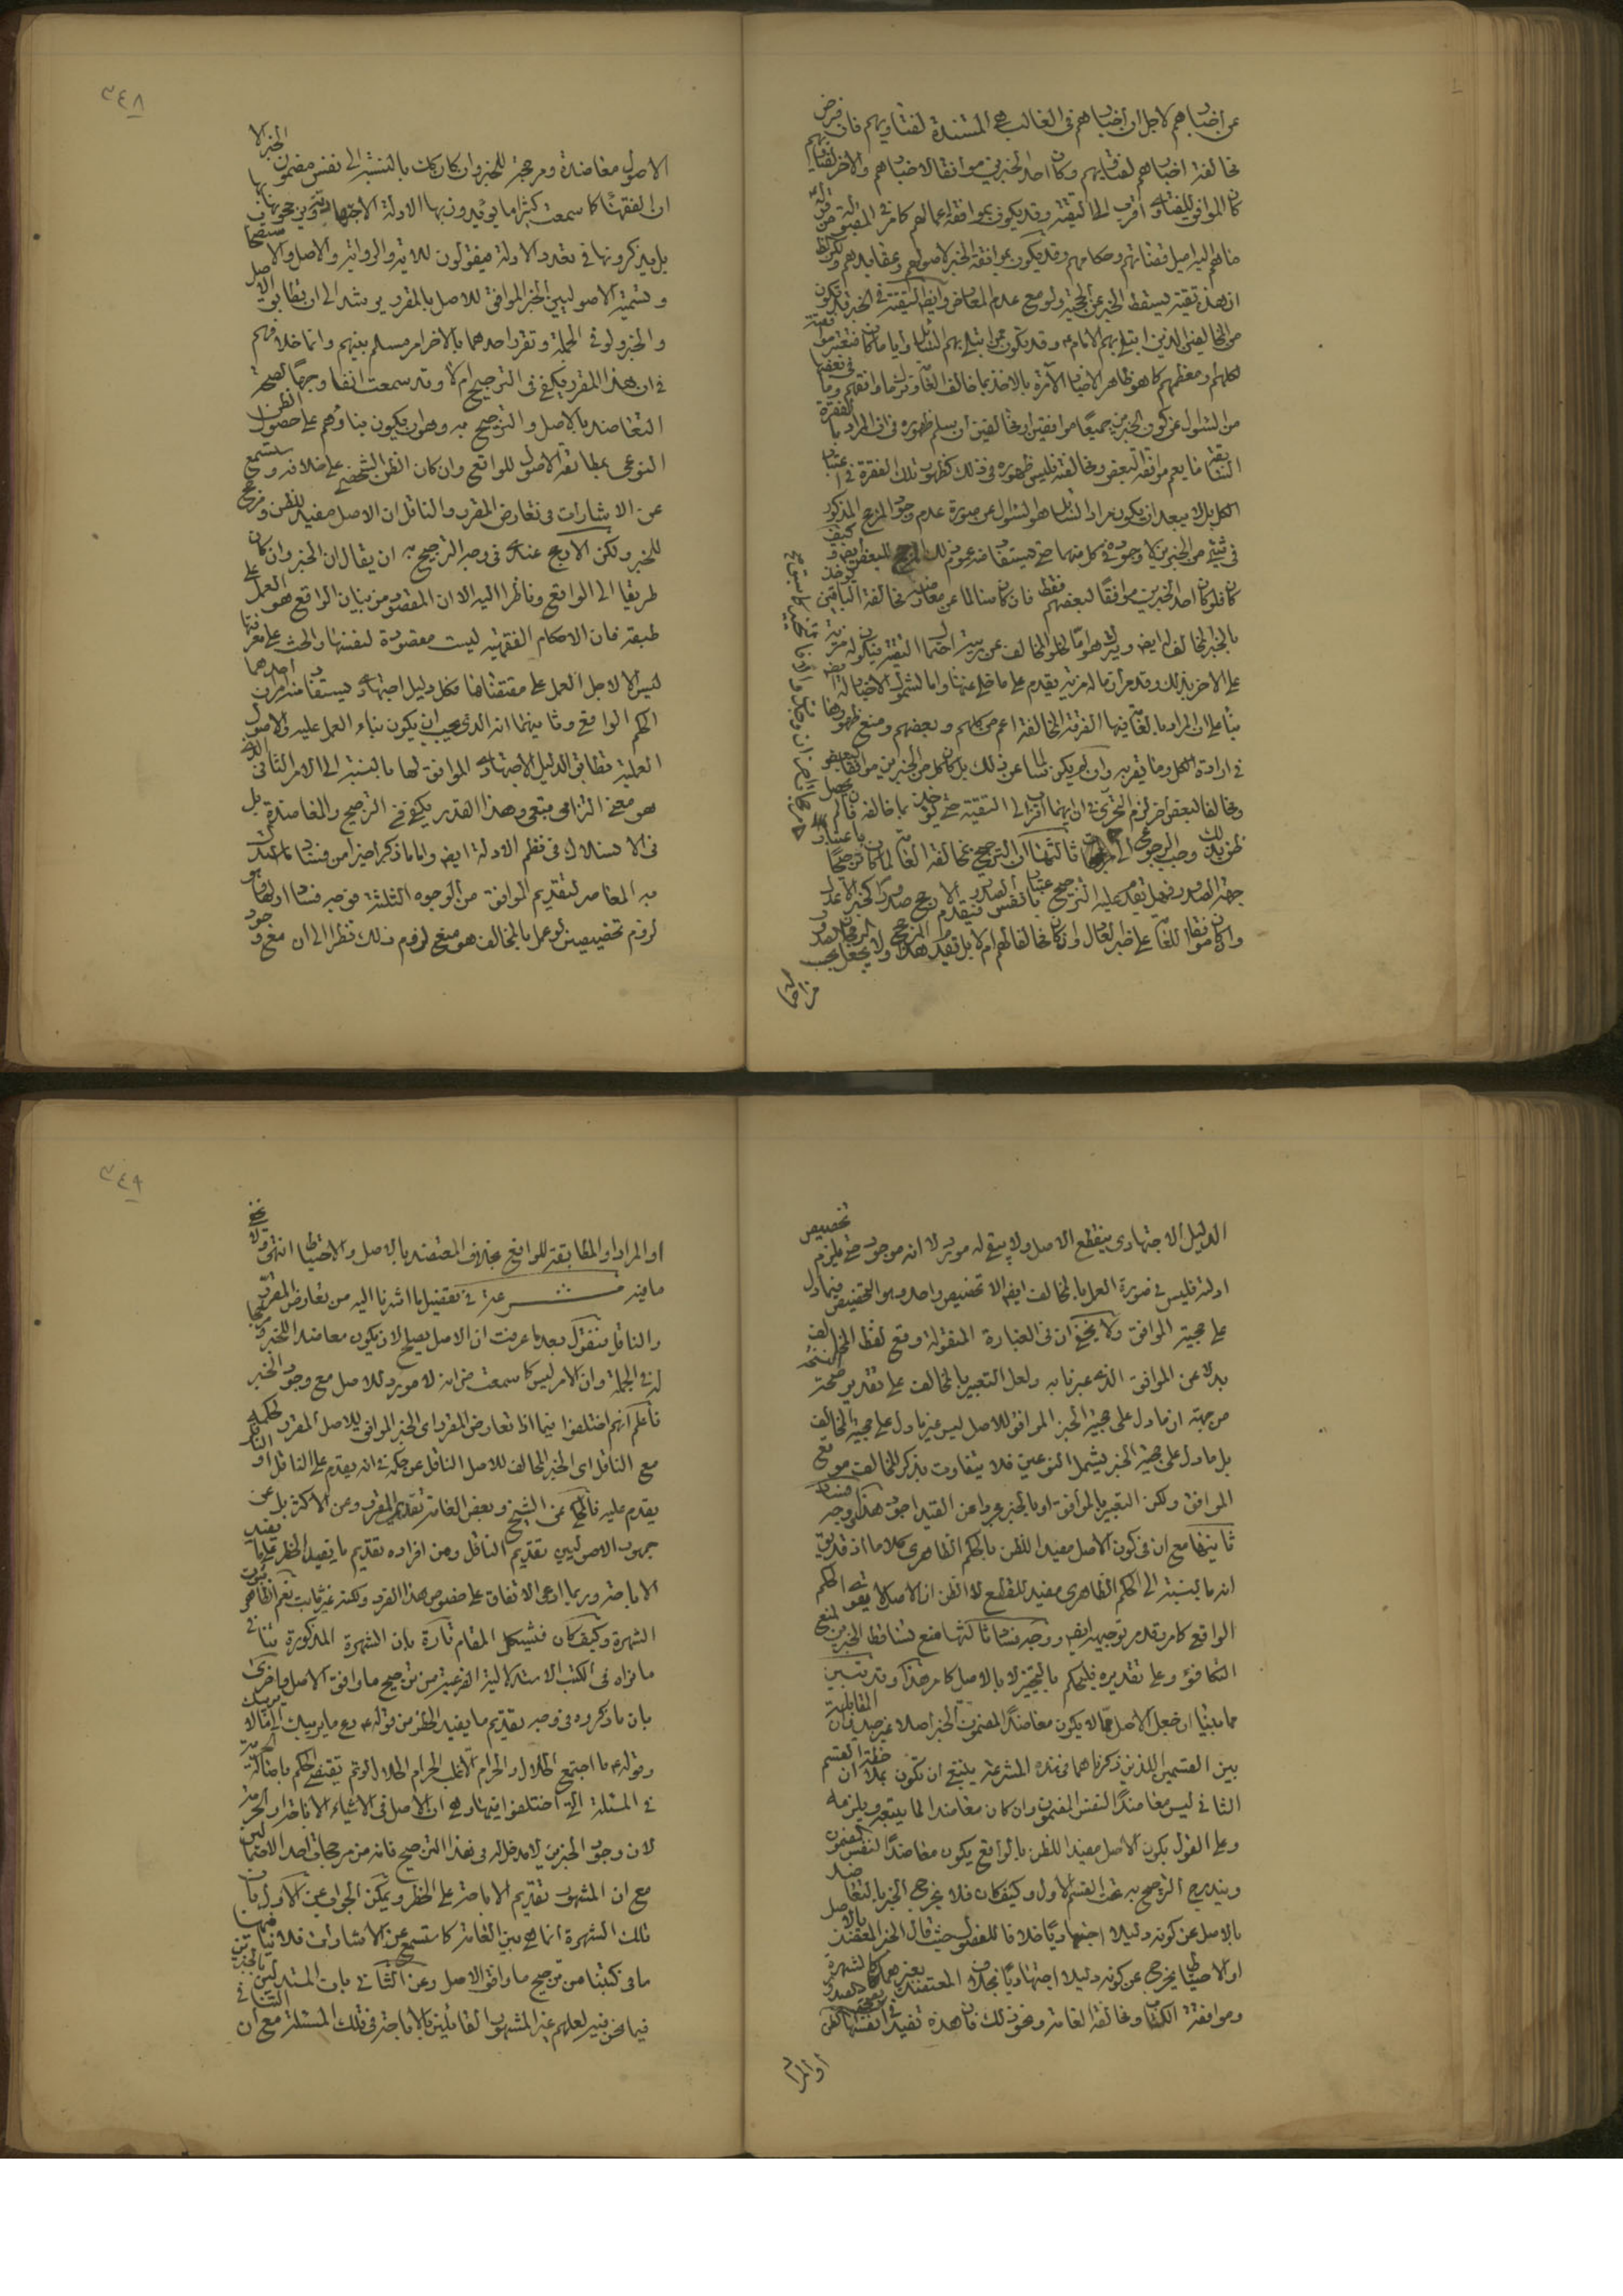 عن اخبارهم لاجل ان اخبارهم فى الغالب هى المستندة لفتاويهم فان فرض
مخالفة اخبارهم لفتاويهم وكان احد الخبرين موافقا لاخبارهم والاخر لفتاويهم
كان الموافق للفتاوى اقرب الى التقية وقد يكون بموافقة اعمالهم كما مر فى المقبولة من قوله
ما هم اليه اميل قضاتهم وحكامهم وقد يكون بموافقة الخبر لاصولهم وعقايدهم
ان هذه تقية يسقط الخبر عن الحجية ولو مع عدم المعارض وايضا التقية فى الخبر قد تكون
من المخالفين الذين ابتلى بهم الامام ع وقد تكون ممن ابتلى بهم السائل وايا ما كان فتعتبر
لكلهم ومعظمهم كما هو ظاهر الاخبار الآمرة بالاخذ بما خالف العامة وترك ما وافقهم وما
من السؤال عن كون الخبرين جميعا موافقين او مخالفين ان يسلم ظهوره فى ان المراد با
لكل بل لا يبعد ان يكون مراد السائل هو السؤال عن صورة عدم وجود المرجح المذكور
فى شىء من الخبرين لا وجوده فى كل منهما حتى يستفاد منه عموم ذلك المرجح للبعض ايضا
كان فلو كان احد الخبرين موافقا لبعضهم فقط فان كان سالما عن معارضة مخالفة الباقين
بالخبر المخالف له ايضا ويترك هو اما لخلو المخالف عن احتمال التقية فيكون له مزية
على الاخر بذلك وقد مر ان ما له مزية يقدم على ما خلى عنها واما لشمول الاخبار له
بناء على ان المراد بالعامة فيها الفرقة المخالفة اعم من كلهم وبعضهم ومنع ظهورها
فى ارادة الكل وما يقرب منه وان لم يكن سالما عن ذلك بل كان كل من الخبرين موافقا لبعض
ومخالفا لبعض اخر لزم التحرى فى ان ايهما اقرب الى التقية حتى يؤخذ بما خالفه فان لم يحصل
ظن بذلك وجب الرجوع الى
ثالثها ان الترجيح بمخالفة العامة لما كان ترجيحا باعتبار
والمخالف للعامة على خبر العادل وان كان مخالفا لهم ام لا بل تقيد هذا المرجح
من احاله

٣٤٨
الاصول معاضدة ومرجحة للخبر وان كان كانت بالنسبة الى نفس مضمون الخبر لا
ان الفقهاء كما سمعت كثيرا ما يؤيدون بها الادلة الاجتهادية ويرجحونها بها
بل يذكرونها فى تعداد الادلة فيقولون للاية والرواية والاصل والاستصحاب
وتسمية الاصوليين الخبر الموافق للاصل بالمقرر يرشد الى ان تطابق الاصل
والخبر ولو فى الجملة وتقرر احدهما بالاخر امر مسلم بينهم وانما خلافهم
فى ان هذا المقرر يكفى فى الترجيح ام لا وقد سمعت انفا وجها لصحة
التعاضد بالاصل والترجيح به وهو ان يكون بناؤهم على حصول الظن
النوعى بمطابقة الاصول للواقع وان كان الظن الشخصى على خلافه وستسمع
عن الاشارات فى تعارض المقرر والناقل ان الاصل مفيد للظن ومرجح
للخبر ولكن الارجح عندى فى وجه الترجيح به ان يقال ان الخبر وان كان
طريقا الى الواقع وناظرا اليه الا ان المقصود من بيان الواقع هو العمل على
طبقه فان الاحكام الفقهية ليست مقصودة لنفسها والحث على معرفتها
ليس الا لاجل العمل على مقتضاها فكل دليل اجتهادى يستفاد منه امران احدهما
الحكم الواقعى وثانيهما انه الذى يجب ان يكون بناء العمل عليه والاصول
العملية تطابق الدليل الاجتهادى الموافق لها بالنسبة الى الامر الثانى الذى
هو معنى التزامى تبعى وهذا القدر يكفى فى الترجيح والمعاضدة بل
فى الاستدلال فى نظم الادلة ايضا واما ما ذكر اخيرا من فساد ما استدل
به المعاصر لتقديم الموافق من الوجوه الثلثة فوجه فساد اولها وهو
لزوم تخصيصين لو عمل بالمخالف هو منع لزوم ذلك نظرا الى ان مع وجود

الدليل الاجتهادى ينقطع الاصل ولا يبقى له مورد لا انه موجود حتى يلزم تخصيص
ادلته فليس فى صورة العمل بالمخالف ايضا الا تخصيص واحد وهو التخصيص فيما دل
على حجية الموافق ولا يخفى ان فى العبارة المنقولة وقع لفظ المخالف
بدلا عن الموافق الذى عبرنا به ولعل التعبير بالمخالف على تقدير صحة النسخة
من جهة ان ما دل على حجية الخبر الموافق للاصل ليس غير ما دل على حجية المخالف
بل ما دل على حجية الخبر يشمل النوعين فلا يتفاوت بذكر المخالف موضع
الموافق ولكن التعبير بالموافق او بالخبر مجردا عن القيد اجود هذا ووجه فساد
ثانيها مع ان فى كون الاصل مفيدا للظن بالحكم الظاهرى كلاما اذ قد يق
انه بالنسبة الى الحكم الظاهرى مفيد للقطع لا الظن ان الاصل لا يقوى الحكم
الواقعى كما مر وقد مر توجيهه ايضا ووجه فساد ثالثها منع تساقط الخبرين لمنع
التكافؤ وعلى تقديره فليحكم بالتخيير لا بالاصل كما مر هذا وقد تبين
مما بينا ان جعل الاصل مما لا يكون معاضدا لمضمون الخبر اصلا غير جيد فان المقابلة
بين القسمين اللذين ذكرناهما فى هذه المشرعة ينبغى ان تكون بملاحظة ان القسم
الثانى ليس معاضدا لنفس المضمون وان كان معاضدا لما يتبعه ويلزمه
وعلى القول بكون الاصل مفيدا للظن بالواقع يكون معاضدا لنفس المضمون
ويندرج الترجيح به تحت القسم الاول وكيف كان فلا يخرج الخبر بالتعاضد
بالاصل عن كونه دليلا اجتهاديا خلافا للفصول حيث قال الخبر المعتضد بالاصل
او الاحتياط يخرج عن كونه دليلا اجتهاديا بخلاف المعتضد بغيرهما كالشهرة
وموافقة الكتاب ومخالفة العامة ونحو ذلك فان هذه تفيد فى انفسها الظن
او المراد

٣٤٩
او المراد او المطابقة للواقع بخلاف المعتضد بالاصل والاحتياط انتهى ولا يخفى
ما فيه مشرعة فى تفصيل ما اشرنا اليه من تعارض المقرر
والناقل فنقول بعد ما عرفت ان الاصل يصلح لان يكون معاضدا للخبر ومرجحا
له فى الجملة وان الامر ليس كما سمعت من انه لا مورد للاصل مع وجود الخبر
فاعلم انهم اختلفوا فيما اذا تعارض المقرر اى الخبر الموافق للاصل المقرر لحكمه
مع الناقل اى الخبر المخالف للاصل الناقل عن حكمه فى انه يقدم على الناقل او الناقل
يقدم عليه فالمحكى عن الشيخ وبعض العامة تقديم المقرر وعن الاكثر بل عن
جمهور الاصوليين تقديم الناقل ومن افراده تقديم ما يفيد الحظر على ما يفيد
الاباحة وربما ادعى الاتفاق على خصوص هذا الفرد ولكنه غير ثابت نعم الظاهر ثبوت
الشهرة وكيف كان فيشكل المقام تارة بان الشهرة المذكورة تنافى
ما نراه فى الكتب الاستدلالية الفرعية من ترجيح ما وافق الاصل واخرى
بان ما ذكروه فى وجه تقديم ما يفيد الحظر من قوله ع دع ما يريبك الى ما لا يريبك
وقوله ع ما اجتمع الحلال والحرام الا غلب الحرام الحلال لو تم يقتضى الحكم باصالة الحرمة
فى المسئلة التى اختلفوا فيها وهى ان الاصل فى الاشياء الاباحة او الحرمة
لان وجود الخبرين لا مدخل له فى هذا الترجيح فانه من مرجحات احد الاحتمالين
مع ان المشهور تقديم الاباحة على الحظر ويمكن الجواب عن الاول بان
تلك الشهرة انما هى بين العامة كما ستسمع عن الاشارات فلا ينافيها
ما فى كتبنا من ترجيح ما وافق الاصل وعن الثانى بان المستدلين بالخبرين
فيما نحن فيه لعلهم غير المشهور القائلين بالاباحة فى تلك المسئلة مع ان التنافى